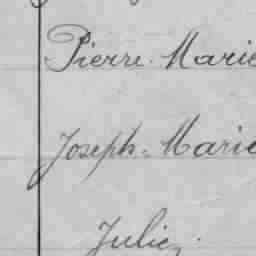 Pierre Marie
Joseph-Marie
Julien.